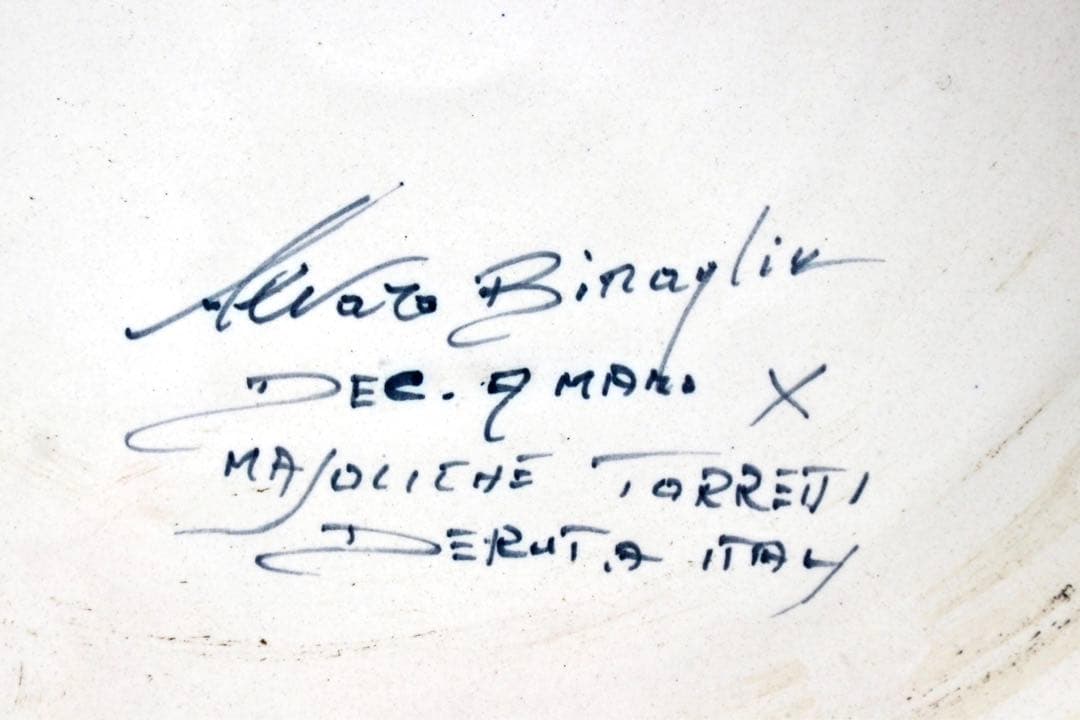 Alvaro Binaglia
DEC. A MANO X
MAJOLICHE TORRETTI
DERUTA ITALY